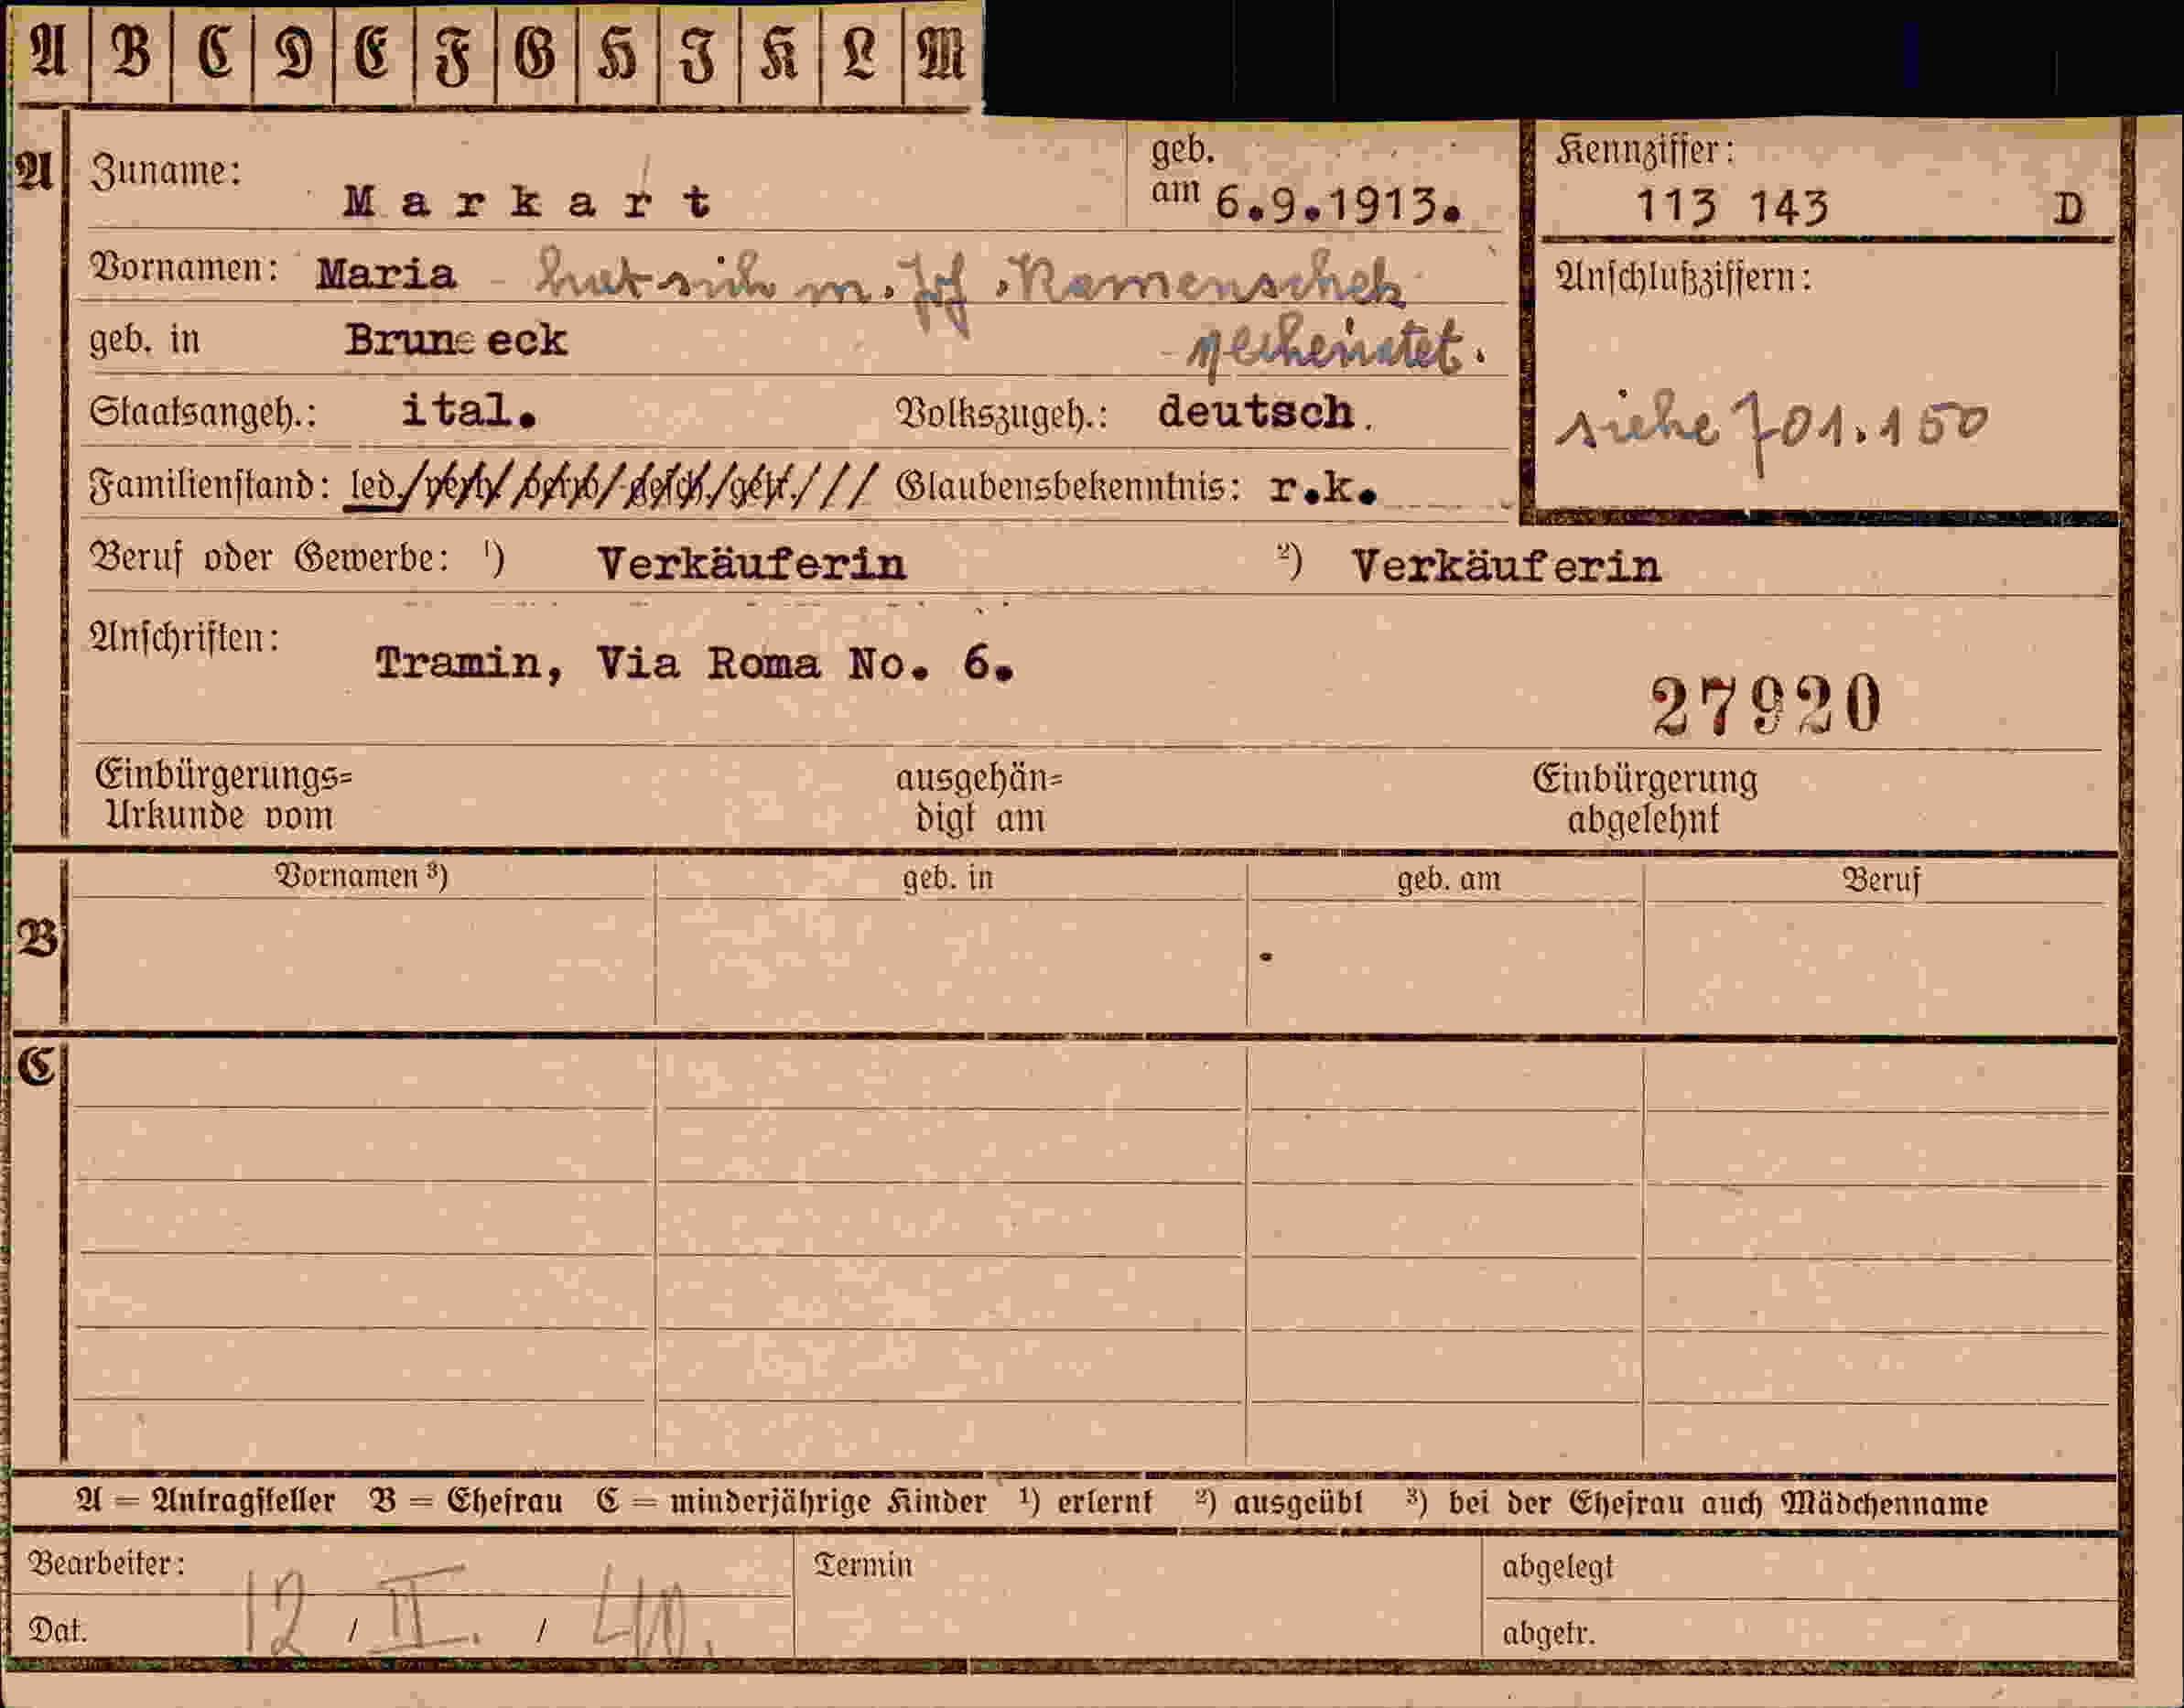 A B C D E F G H I K L M
A Zuname: Markart geb. am 6.9.1913. Kennziffer: 113 143 D
Vornamen: Maria hat sich m. Jos. Ramenschek
geb. in Bruneck verheiratet.
Anschlußziffern:
siehe 701.150
Staatsangeh.: ital. Volkszugeh.: deutsch.
Familienstand: led./verh/verw/gesch./getr./// Glaubensbekenntnis: r.k.
Beruf oder Gewerbe: ¹) Verkäuferin ²) Verkäuferin
Anschriften: Tramin, Via Roma No. 6.
27920
Einbürgerungs= ausgehän= Einbürgerung
Urkunde vom digt am abgelehnt
Vornamen ³) geb. in geb. am Beruf
B
C
A = Antragsteller B = Ehefrau C = minderjährige Kinder ¹) erlernt ²) ausgeübt ³) bei der Ehefrau auch Mädchenname
Bearbeiter: Termin abgelegt
Dat. 12 / II. / 40. abgetr.